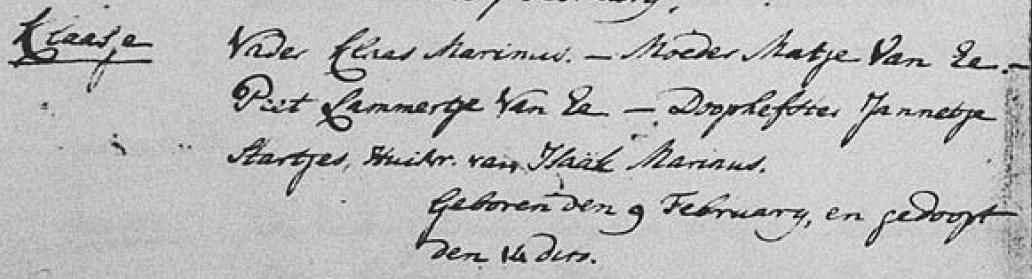 February,
Klaasje
Vader Klaas Marinus. – Moeder Matje Van Ee. –
Peet Lammertje Van Ee – Doophefster Jannetje
Startjes, Huisvr. van Isaak Marinus.
Geboren den 9 February, en gedoopt
den 14 dito.